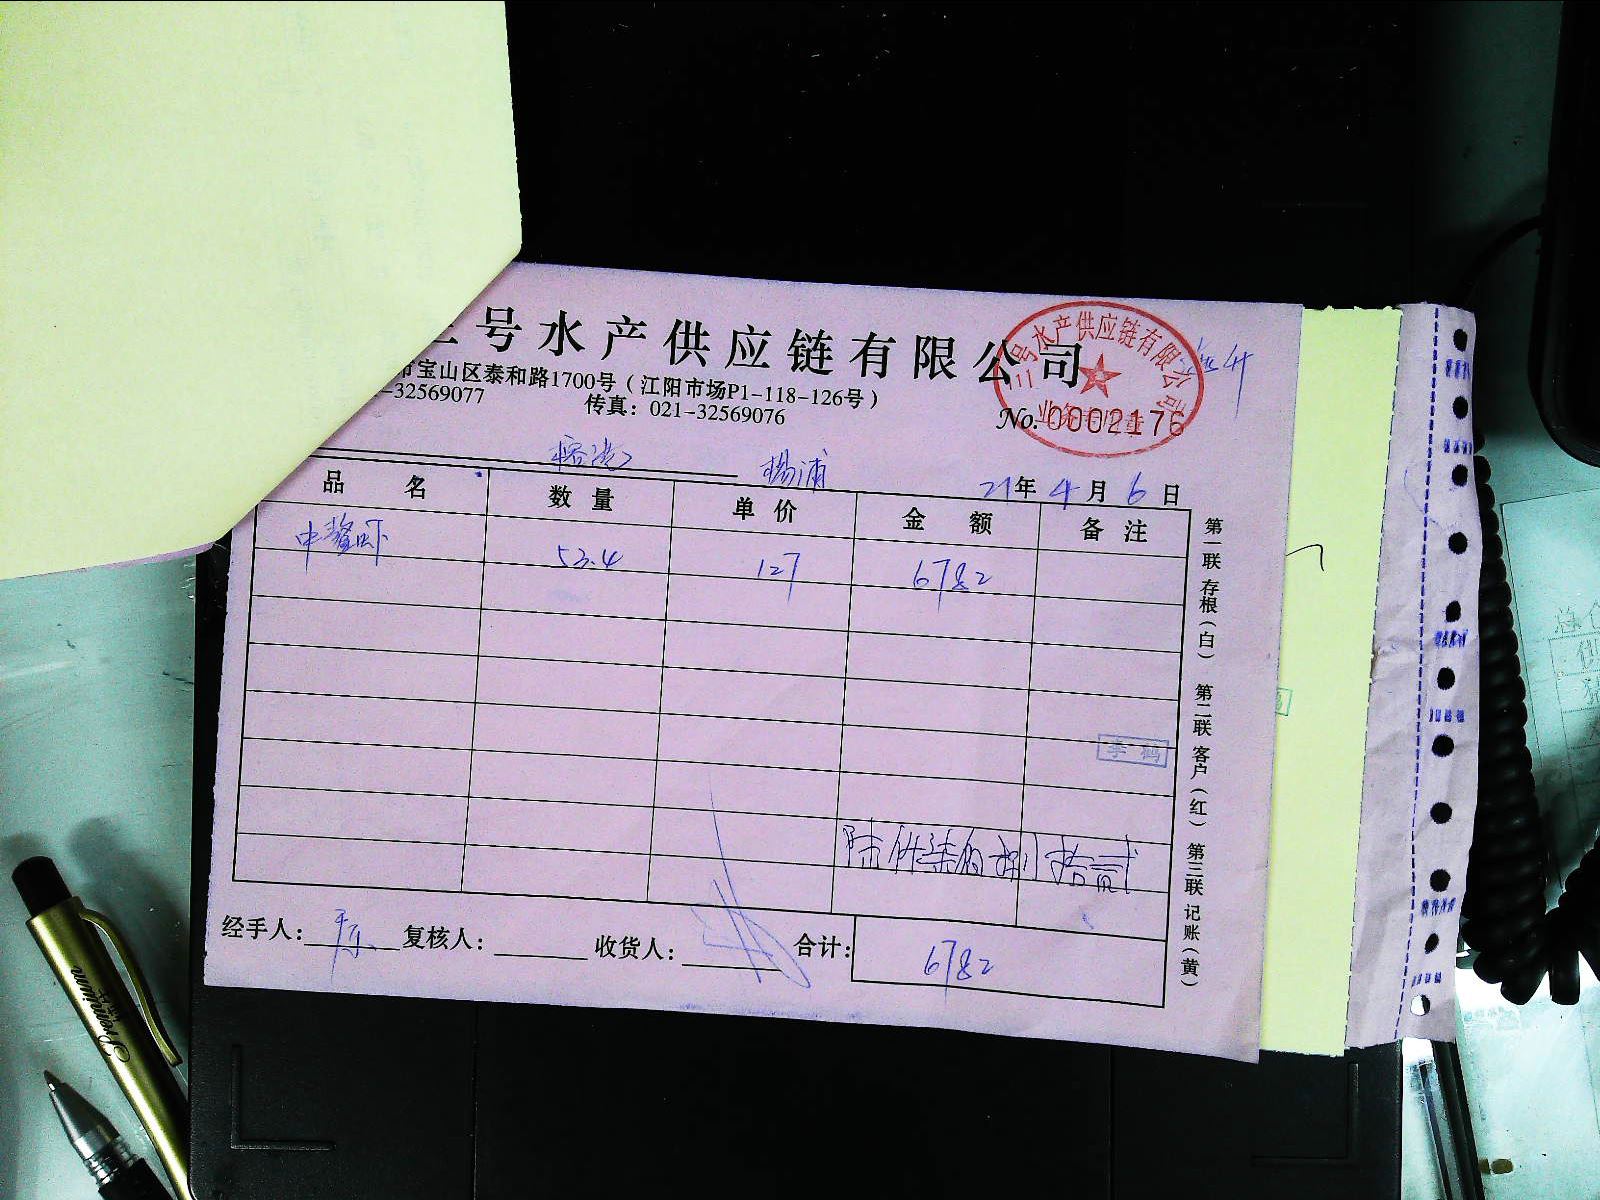 三号水产供应链有限公司
市宝山区泰和路1700号(江阳市场P1-118-126号)
-32569077 传真:021-32569076
No.0002176
三号水产供应链有限公司
杨浦
21年4月6日
品名 数量 单价 金额 备注
中鳌虾 53.4 127 6782
李鹤
陆仟柒佰捌拾贰
经手人: 复核人: 收货人: 合计: 6782
第一联 存根(白) 第二联 客户(红) 第三联 记账(黄)
Premium